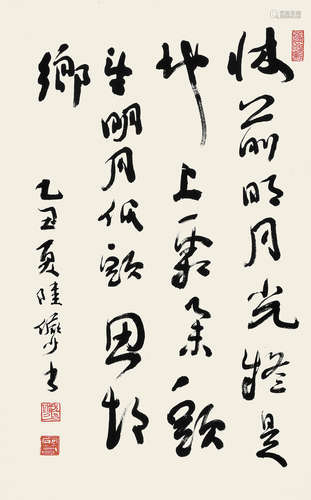 牀前明月光疑是
地上霜舉頭
望明月低頭思故
鄉
乙丑夏陸儼少书